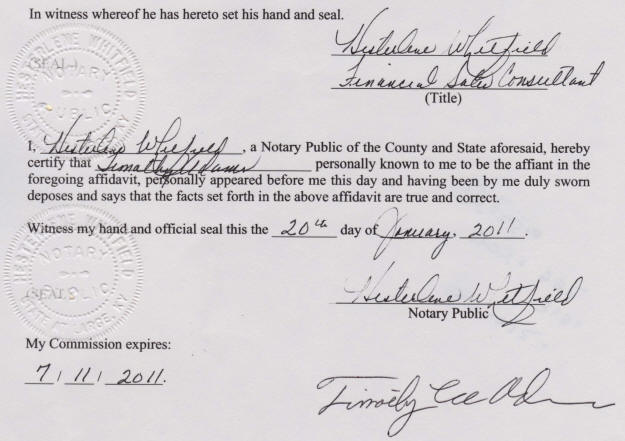 In witness whereof he has hereto set his hand and seal.
Hesterlene Whitfield
(SEAL)
Financial Sales Consultant
(Title)
HESTERLENE WHITFIELD
NOTARY
PUBLIC
I, Hesterlene Whitfield, a Notary Public of the County and State aforesaid, hereby
certify that Timothy Adams personally known to me to be the affiant in the
foregoing affidavit, personally appeared before me this day and having been by me duly sworn
deposes and says that the facts set forth in the above affidavit are true and correct.
Witness my hand and official seal this the 20th day of January, 2011.
HESTERLENE WHITFIELD
NOTARY
PUBLIC
STATE AT LARGE, KY
(SEAL)
Hesterlene Whitfield
Notary Public
My Commission expires:
7/11/2011.
Timothy Lee Adams